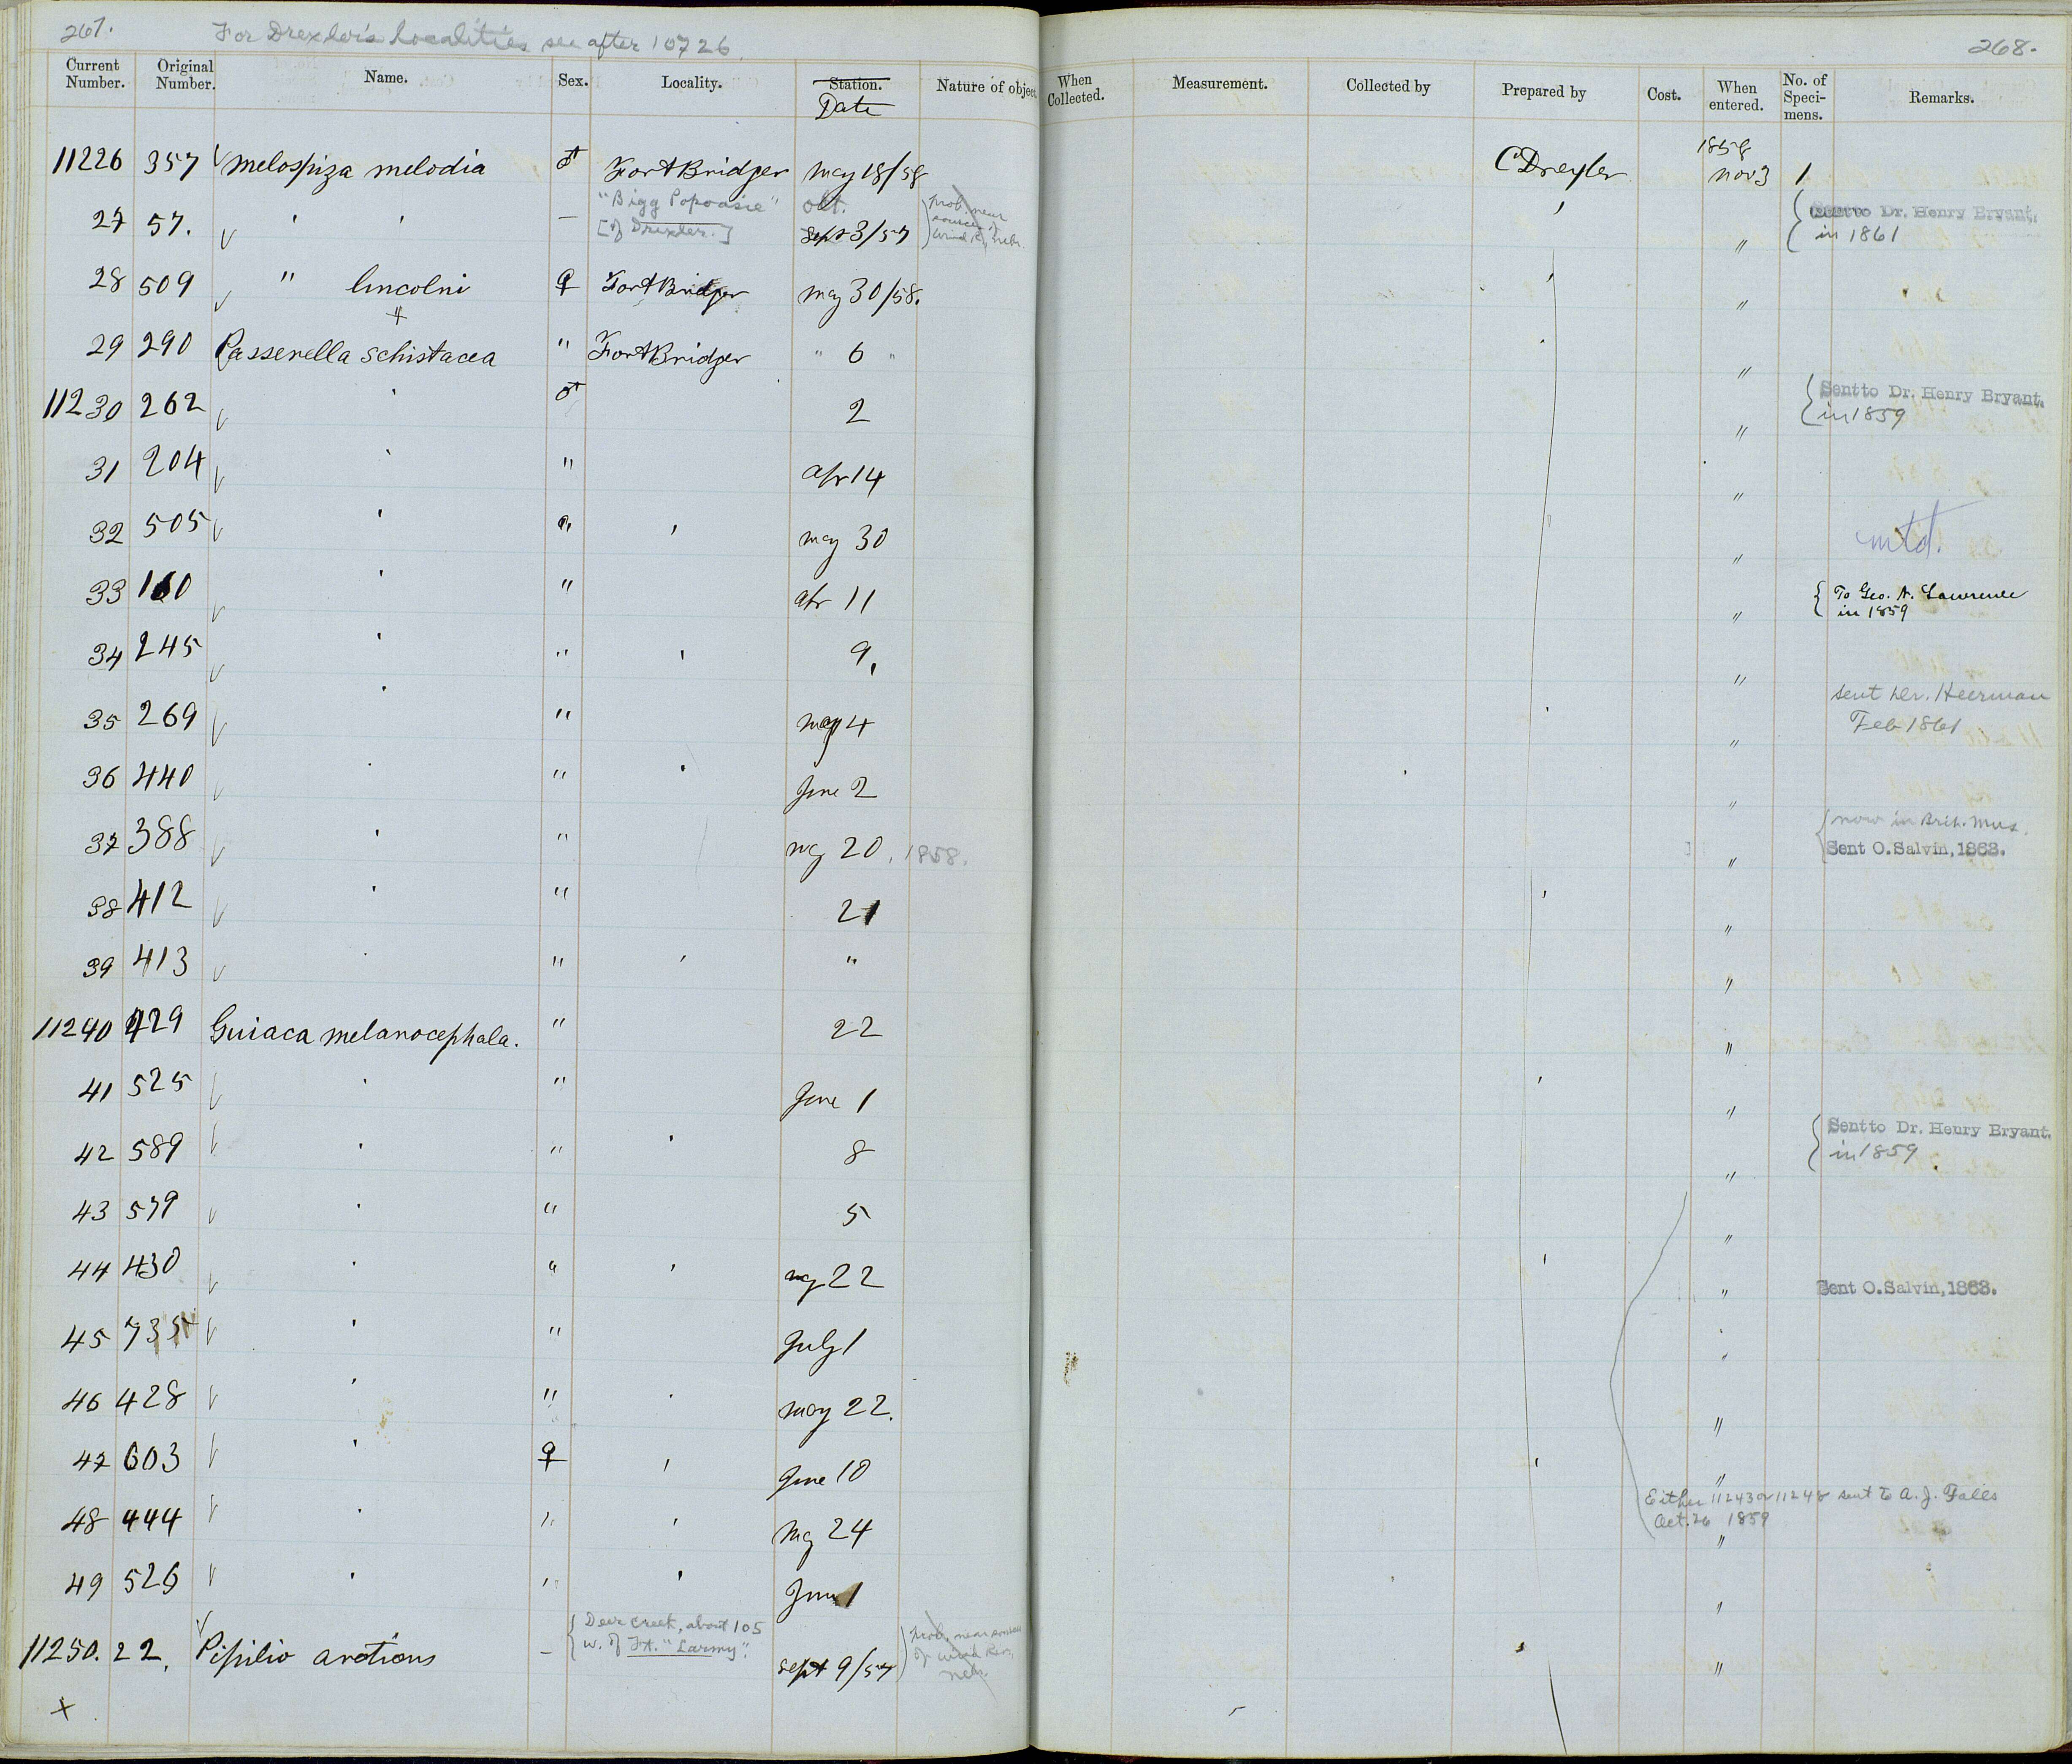 267.
For Drexler's Localities see after 10726
268.
Current Number. Original Number. Name. Sex. Locality. Station. Date Nature of object When Collected. Measurement. Collected by Prepared by Cost. When entered. No. of Specimens. Remarks.
11226 357 Melospiza melodia ♂ Fort Bridger May 18/58 C Drexler 1858 Nov 3 1
27 57. ' ' — "Bigg Popoasie" [of Drexler.] Oct. Sept 3/57 prob. near source of Wind R, Nebr. ' " Sent to Dr. Henry Bryant. in 1861
28 509 " lincolni ♀ Fort Bridger May 30/58. ' "
29 290 Passerella schistacea " Fort Bridger " 6 " "
11230 262 ' ♂ 2 " Sent to Dr. Henry Bryant. in 1859
31 204 ' " Apr 14 "
32 505 ' " ' May 30 " mtd.
33 160 ' " Apr 11 " To Geo. N. Lawrence in 1859
34 245 ' " ' 9 "
35 269 ' " May 4 " sent Dr. Heerman Feb 1861
36 440 ' " ' June 2 "
37 388 ' " My 20, 1858. " now in Brit. Mus. Sent O. Salvin, 1863.
38 412 ' " 21 ' "
39 413 ' " ' " "
11240 429 Guiaca melanocephala. " 22 "
41 525 ' " June 1 ' "
42 589 ' " ' 8 " Sent to Dr. Henry Bryant. in 1859
43 579 ' " 5 "
44 430 ' " ' My 22 ' " Sent O. Salvin, 1863.
45 735 ' " July 1 "
46 428 ' " ' May 22. "
47 603 ' ♀ ' June 10 ' "
Either 11243 or 11248 sent to A. J. Falls Oct. 26 1859
48 444 ' " ' My 24 "
49 526 ' " ' June 1 "
11250. 22. Pipilio arctious — Deer Creek, about 105 w. of Ft. "Larmy". Sept 9/57 prob. near source of Wind Riv, Neb. "
x